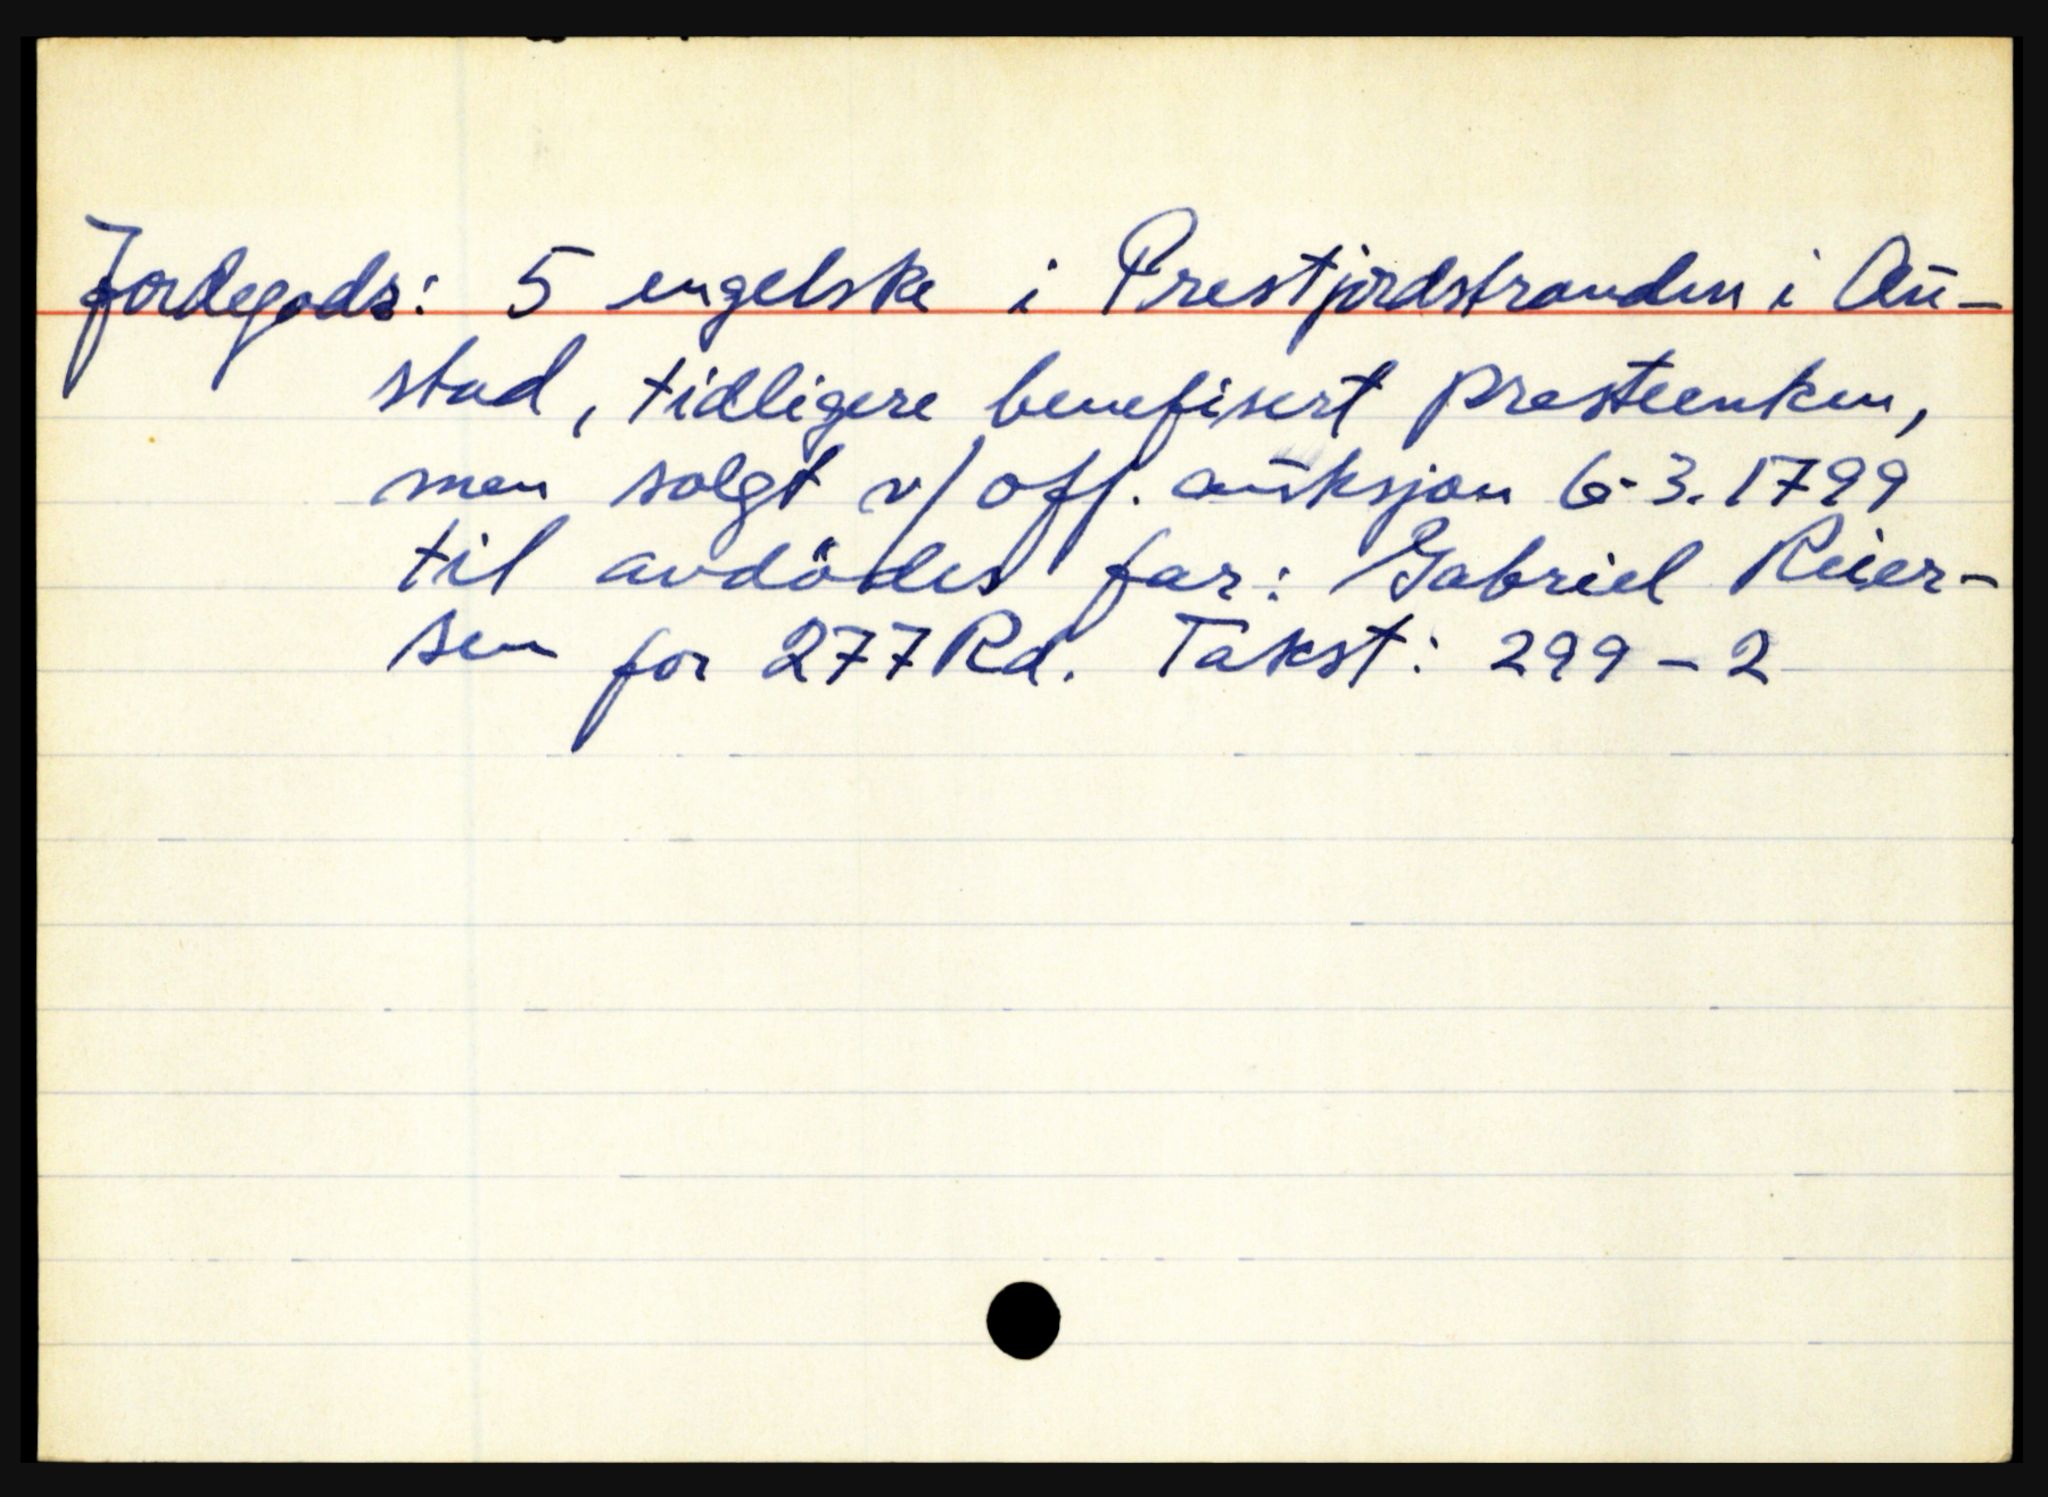 Jordegods: 5 engelske i Prestjordstranden i Au-
stad, tidligere benefisert presteenken,
men solgt v/ off. auksjon 6-3.1799
til avdödes far: Gabriel Reier-
sen for 277 Rd. Takst: 299 - 2